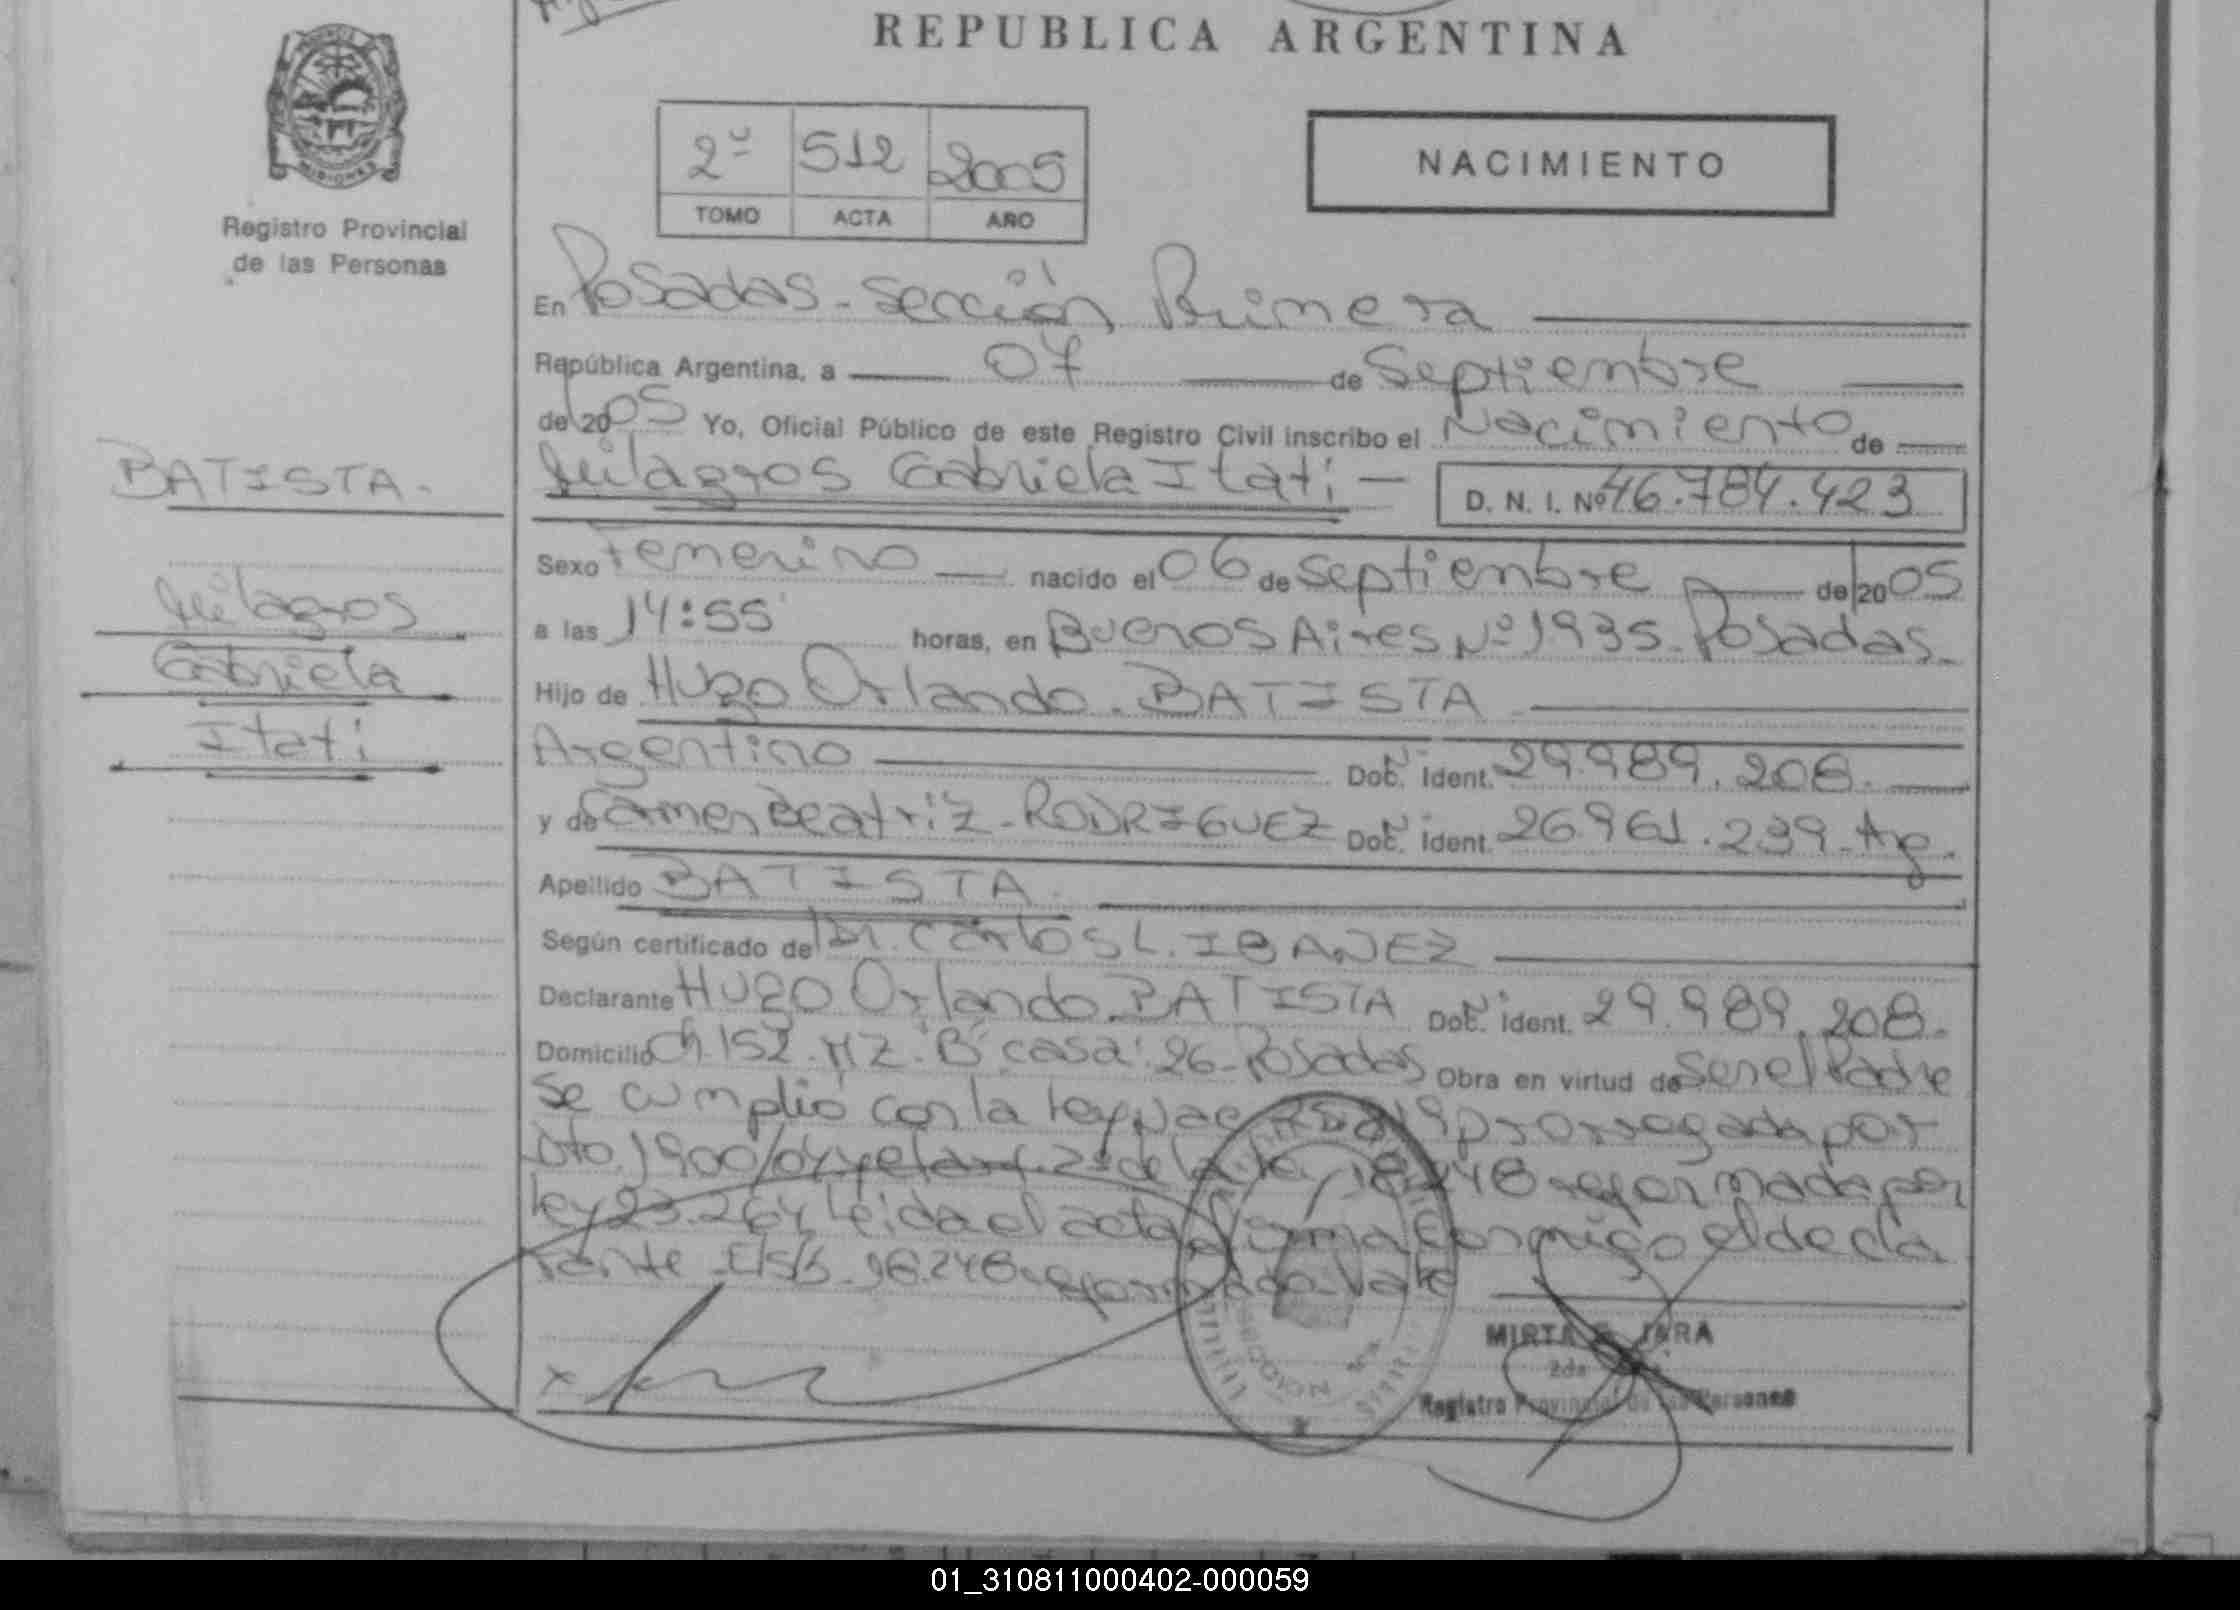 REPUBLICA ARGENTINA
MISIONES
Registro Provincial
de las Personas
2º 512 2005
TOMO ACTA AÑO
NACIMIENTO
En Posadas - Sección Primera
República Argentina, a 07 de Septiembre
de 2005 Yo, Oficial Público de este Registro Civil inscribo el Nacimiento de
Milagros Gabriela Itati D. N. I. Nº 46.784.423
BATISTA.
Milagros
Gabriela
Itati
Sexo Femenino nacido el 06 de Septiembre de 2005
a las 14:55 horas, en Buenos Aires Nº 1935 - Posadas -
Hijo de Hugo Orlando - BATISTA
Argentino Doc. Ident. 29.989.208.
y de Carmen Beatriz - RODRIGUEZ Doc. Ident. 26.961.239 - Arg.
Apellido BATISTA.
Según certificado de Dr. Carlos L. IBAÑEZ
Declarante Hugo Orlando - BATISTA Doc. Ident. 29.989.208.
Domicilio Ch. 152. MZ. "B" casa: 26 - Posadas Obra en virtud de Ser el Padre
Se cumplió con la ley Nac. prorrogada por
Dto. 1900/04 y el art. 2º de la ley 18.248 reformada por
ley 23.264 Leída el acta firma conmigo el decla
rante - E/s/b - 18.248 reformada - Vale
MIRTA JARA
2da
Registro Provincial de las Personas
01_310811000402-000059